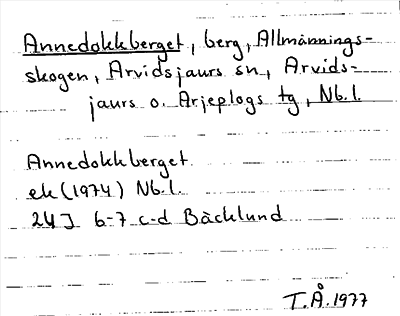 Annedokkberget, berg, Allmännings-
skogen, Arvidsjaurs sn, Arvids-
jaurs o. Arjeplogs tg, Nb. l.
Annedokkberget
ek (1974) Nb. l.
24J 6-7 c-d Bäcklund
T.Å. 1977